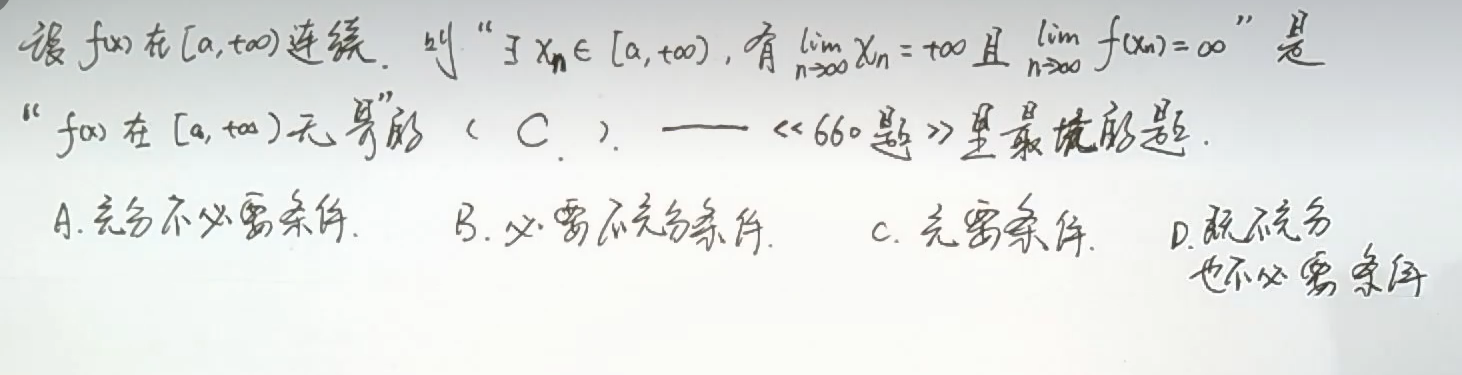 设 f(x) 在 [a,+∞) 连续. 则 “∃ xₙ∈ [a,+∞), 有 lim n→∞ xₙ = +∞ 且 lim n→∞ f(xₙ) = ∞” 是
“f(x) 在 [a,+∞) 无界”的 ( C ). —— 《660题》里最坑的题.
A. 充分不必要条件. B. 必要不充分条件. C. 充要条件. D. 既不充分
也不必要条件